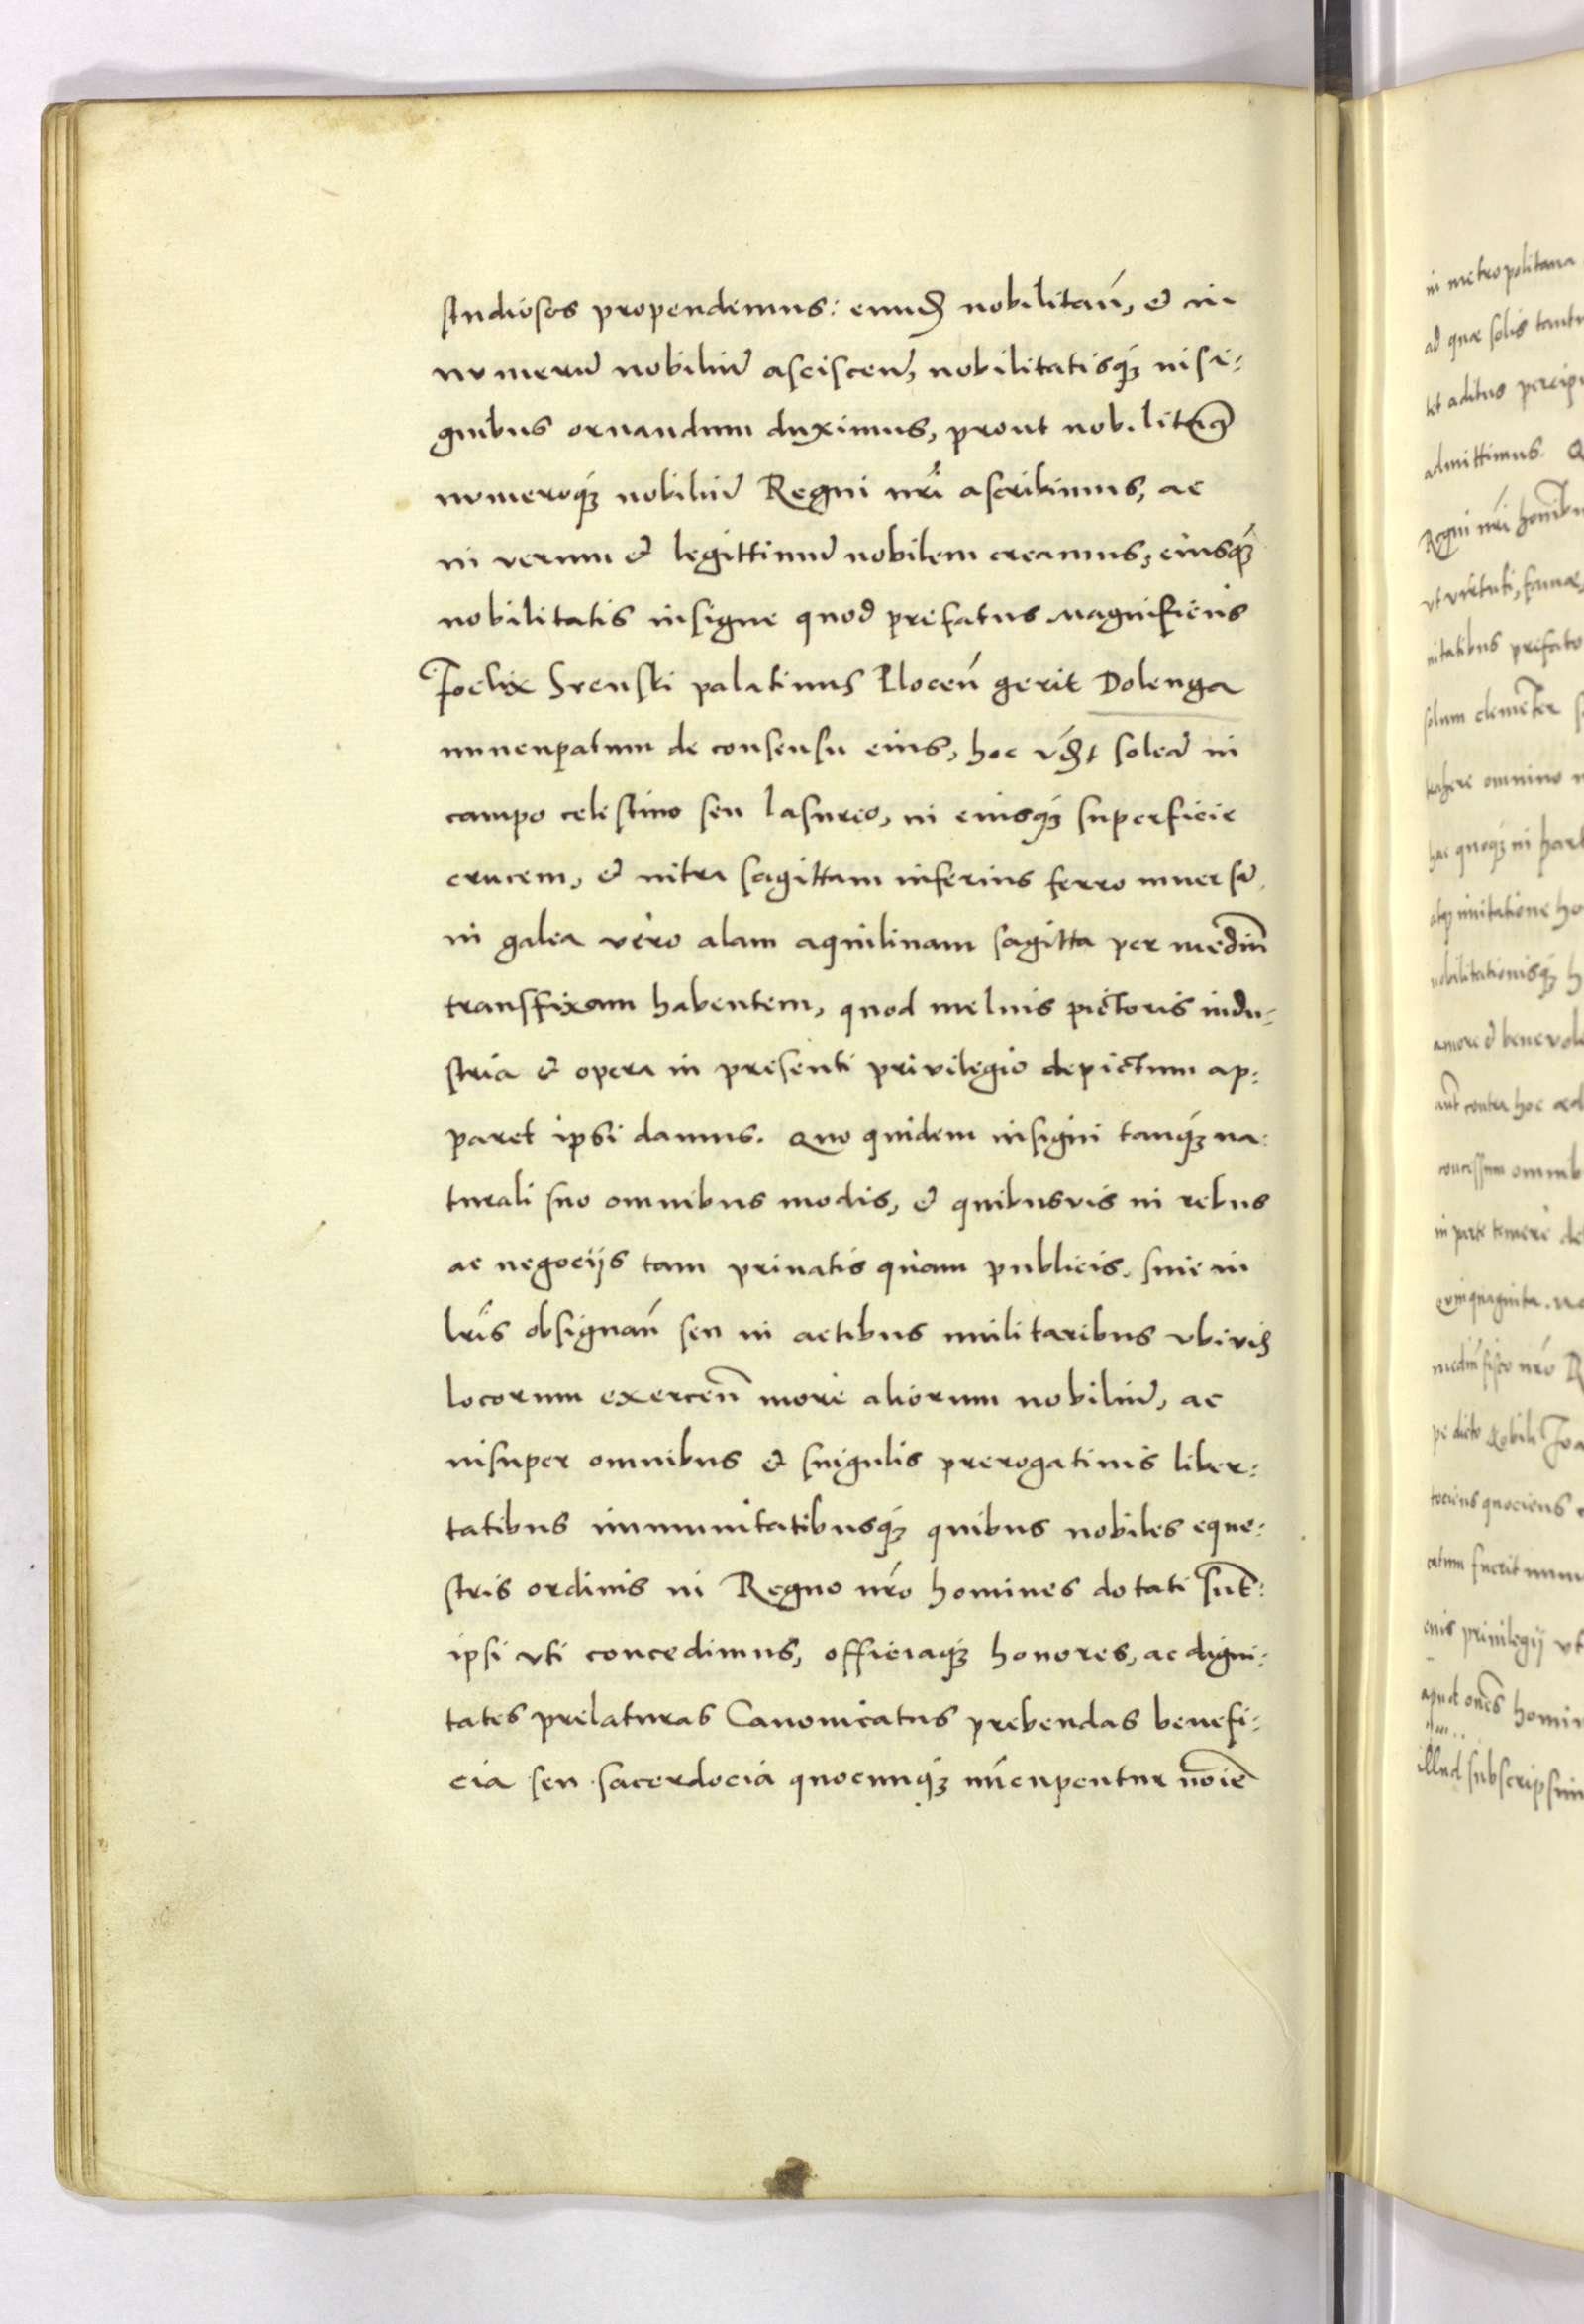 studiosos propendemus: eundẽ nobilitań, et in
numerũ nobiliũ asciscen̄, nobilitatisq́ꝫ insi-
gnibus ornandum duximus, prout nobilitam̃
numeroq́ꝫ nobiliũ Regni nr̃i ascribimus, ac
in verum et legittimũ nobilem creamus, eiusq́ꝫ
nobilitatis insigne quod prefatus Magnificus
Foelix Srenski palatinus Plocen̄ gerit Dolenga
nuncupatum de consensu eius, hoc vꝫt soleã in
campo celestino seu lasureo, in eiusq́ꝫ superficie
crucem, et intra sagittam inferius ferro inuersã,
in galea vero alam aquilinam sagitta per mediũ
transfixam habentem, quod melius pictoris indu-
stria et opera in presenti privilegio depictum ap-
paret ipsi damus. Quo quidem insigni tanq́ꝫ na-
turali suo omnibus modis, et quibusvis in rebus
ac negocijs tam priuatis quam publicis, siue in
lr̃is obsignan̄ seu in actibus militaribus vbivis
locorum exercen̄ more aliorum nobiliũ, ac
insuper omnibus et singulis prerogatiuis liber-
tatibus immunitatibusq́ꝫ quibus nobiles eque-
stris ordinis in Regno nr̃o homines dotati sũt:
ipsi vti concedimus, officiaq́ꝫ honores, ac digni-
tates prelaturas Canonicatus prebendas benefi-
cia seu sacerdocia quocunq́ꝫ nũcupentur noĩe
in metropolitana
ad quae solis tantu
tet aditus percipi
admittimus. Q
Regni nr̃i homĩbu
vt virtuti, famae,
nitatibus prefato
solum clemẽter s
trahere omnino n
hac quoqꝫ in par
atqꝫ imitatione ho
nobilitationisq́ꝫ h
amore et benevole
aut contra hoc ad
concessum omnib
in parte temere de
quinquaginta. ma
mediũ fisco nr̃o R
pe dicto Nobili Joa
tociens quociens
catum fuerit num
cuius priuilegij vt
apud oñes homin
illud subscripsim